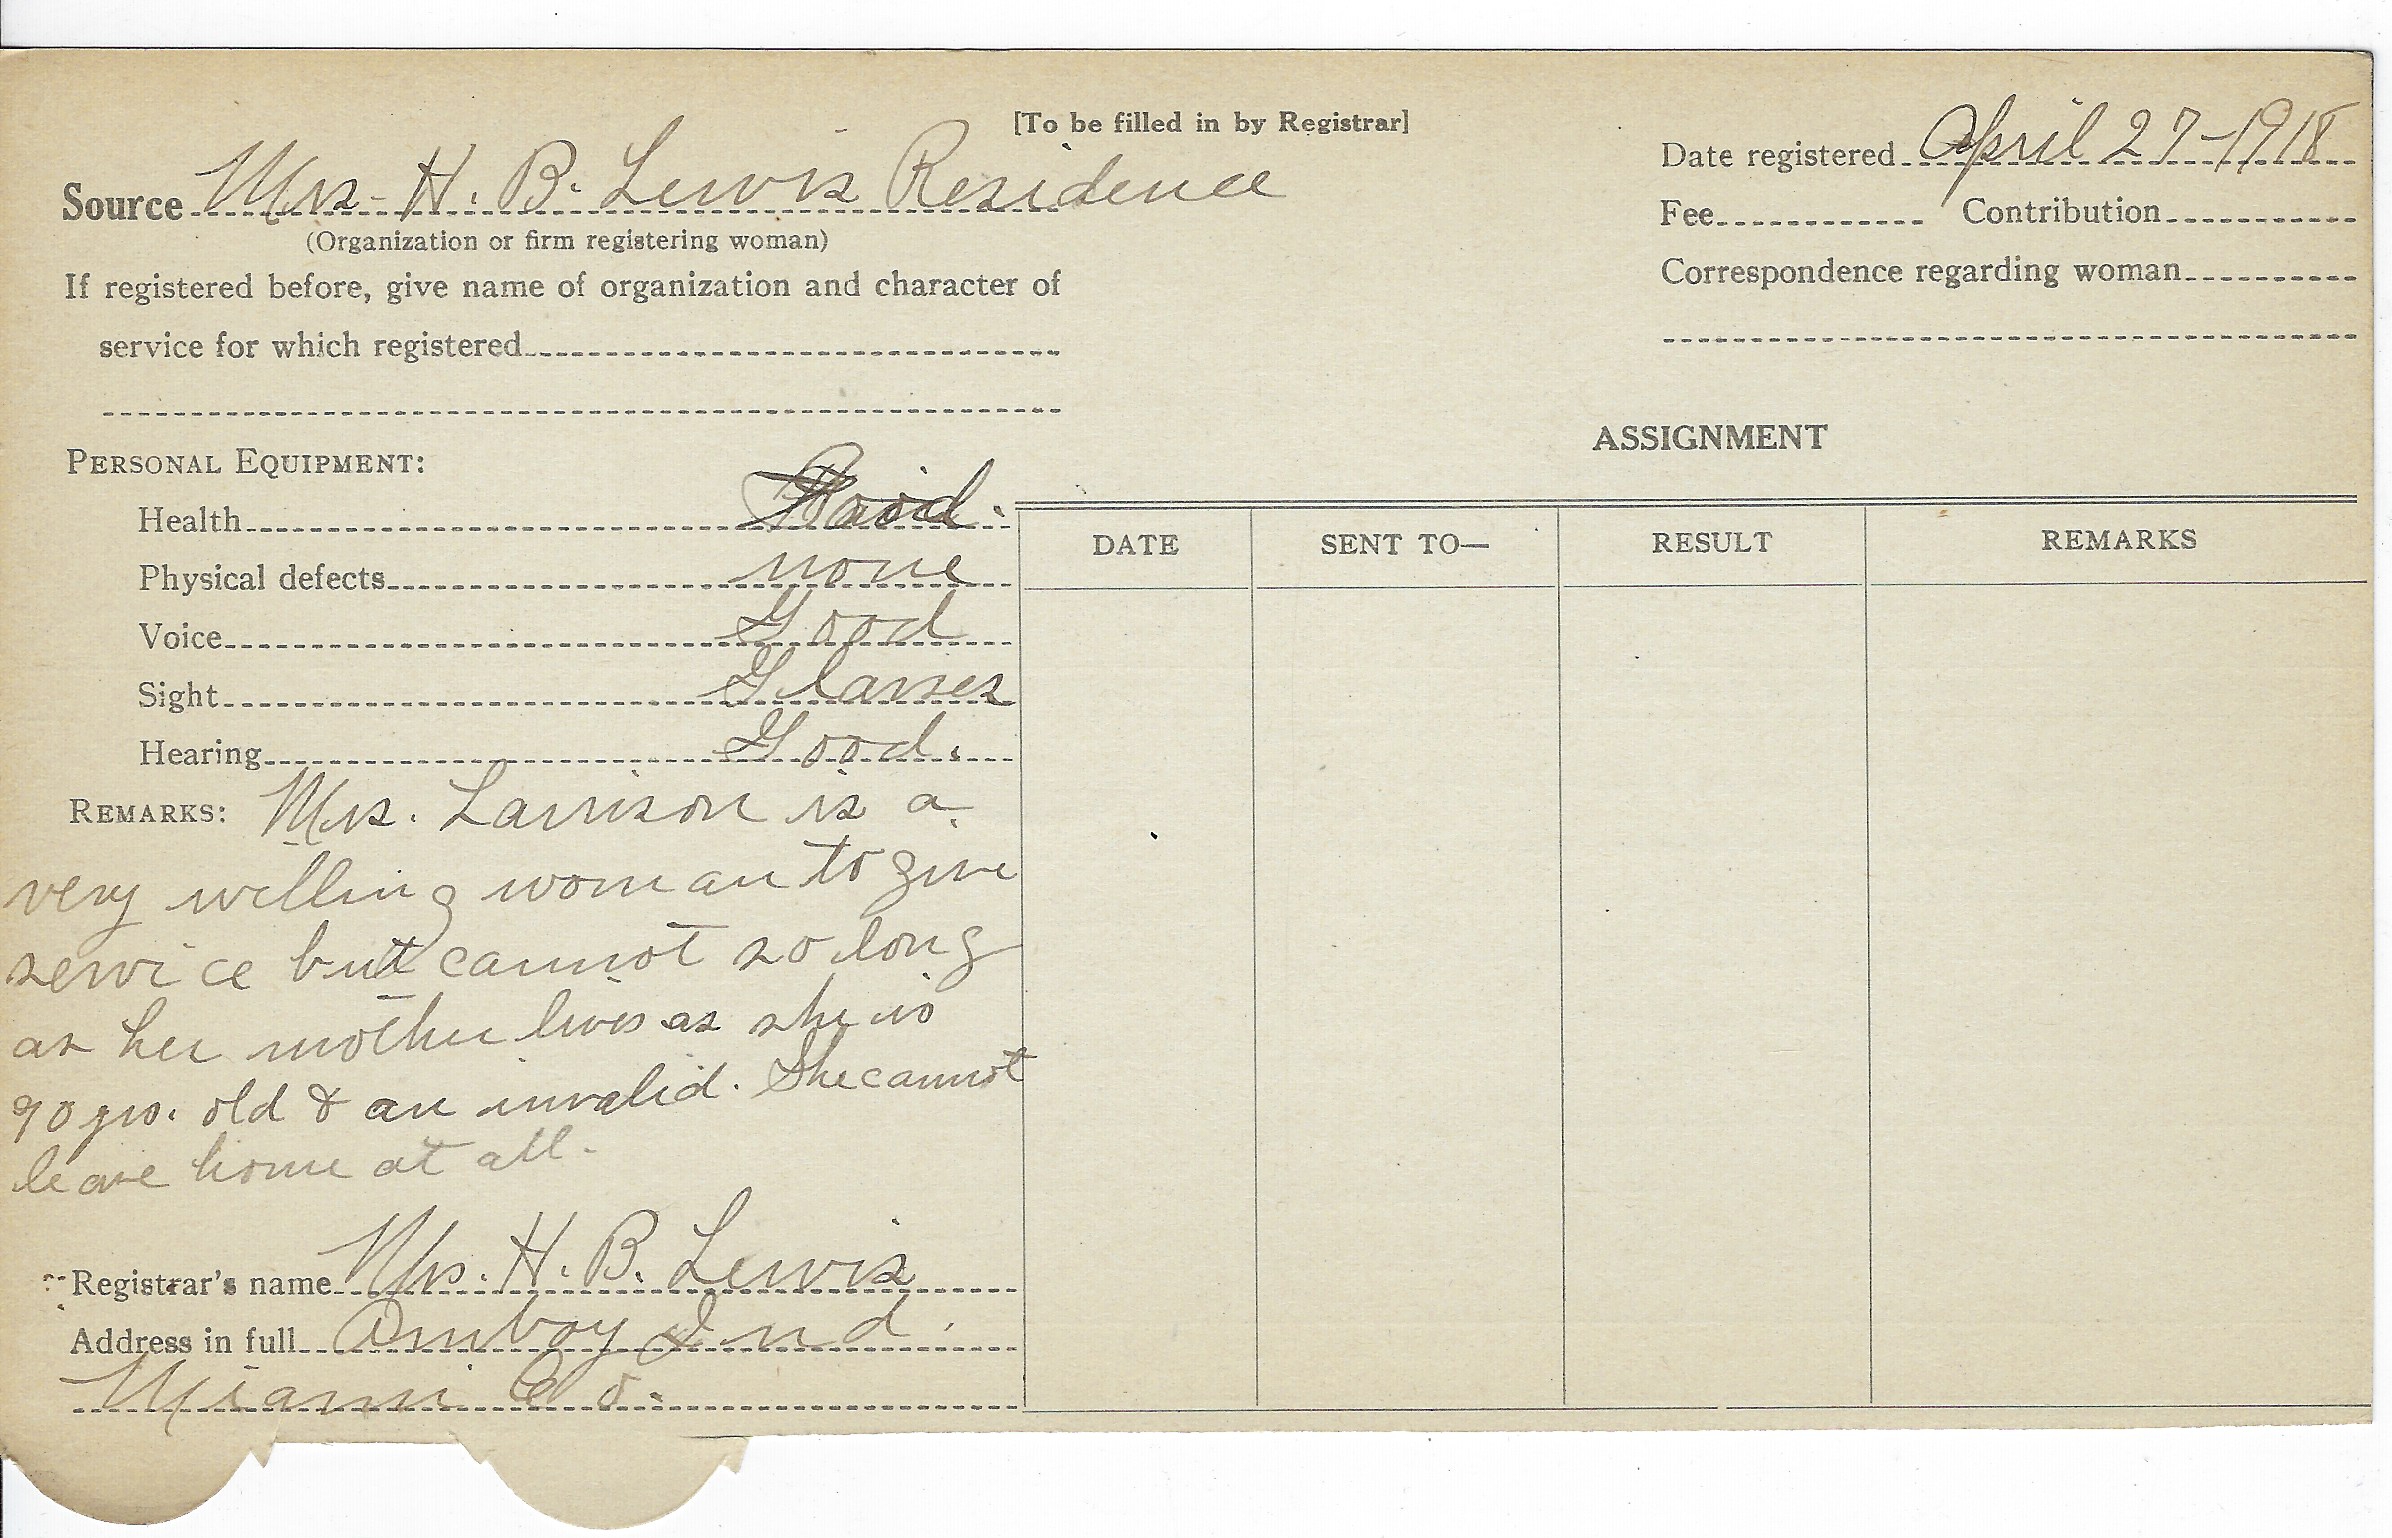 [To be filled in by Registrar]
Source Mrs. H. B. Lewis Residence
(Organization or firm registering woman)
If registered before, give name of organization and character of
service for which registered
Date registered April 27-1918
Fee Contribution
Correspondence regarding woman
PERSONAL EQUIPMENT:
Health
Physical defects none
Voice Good
Sight Glasses
Hearing Good.
REMARKS: Mrs. Larrison is a
very willing woman to give
service but cannot so long
as her mother lives as she is
90 yrs. old & an invalid. She cannot
leave home at all.
Registrar's name Mrs. H. B. Lewis
Address in full Amboy Ind.
Miami Co.
ASSIGNMENT
DATE SENT TO— RESULT REMARKS